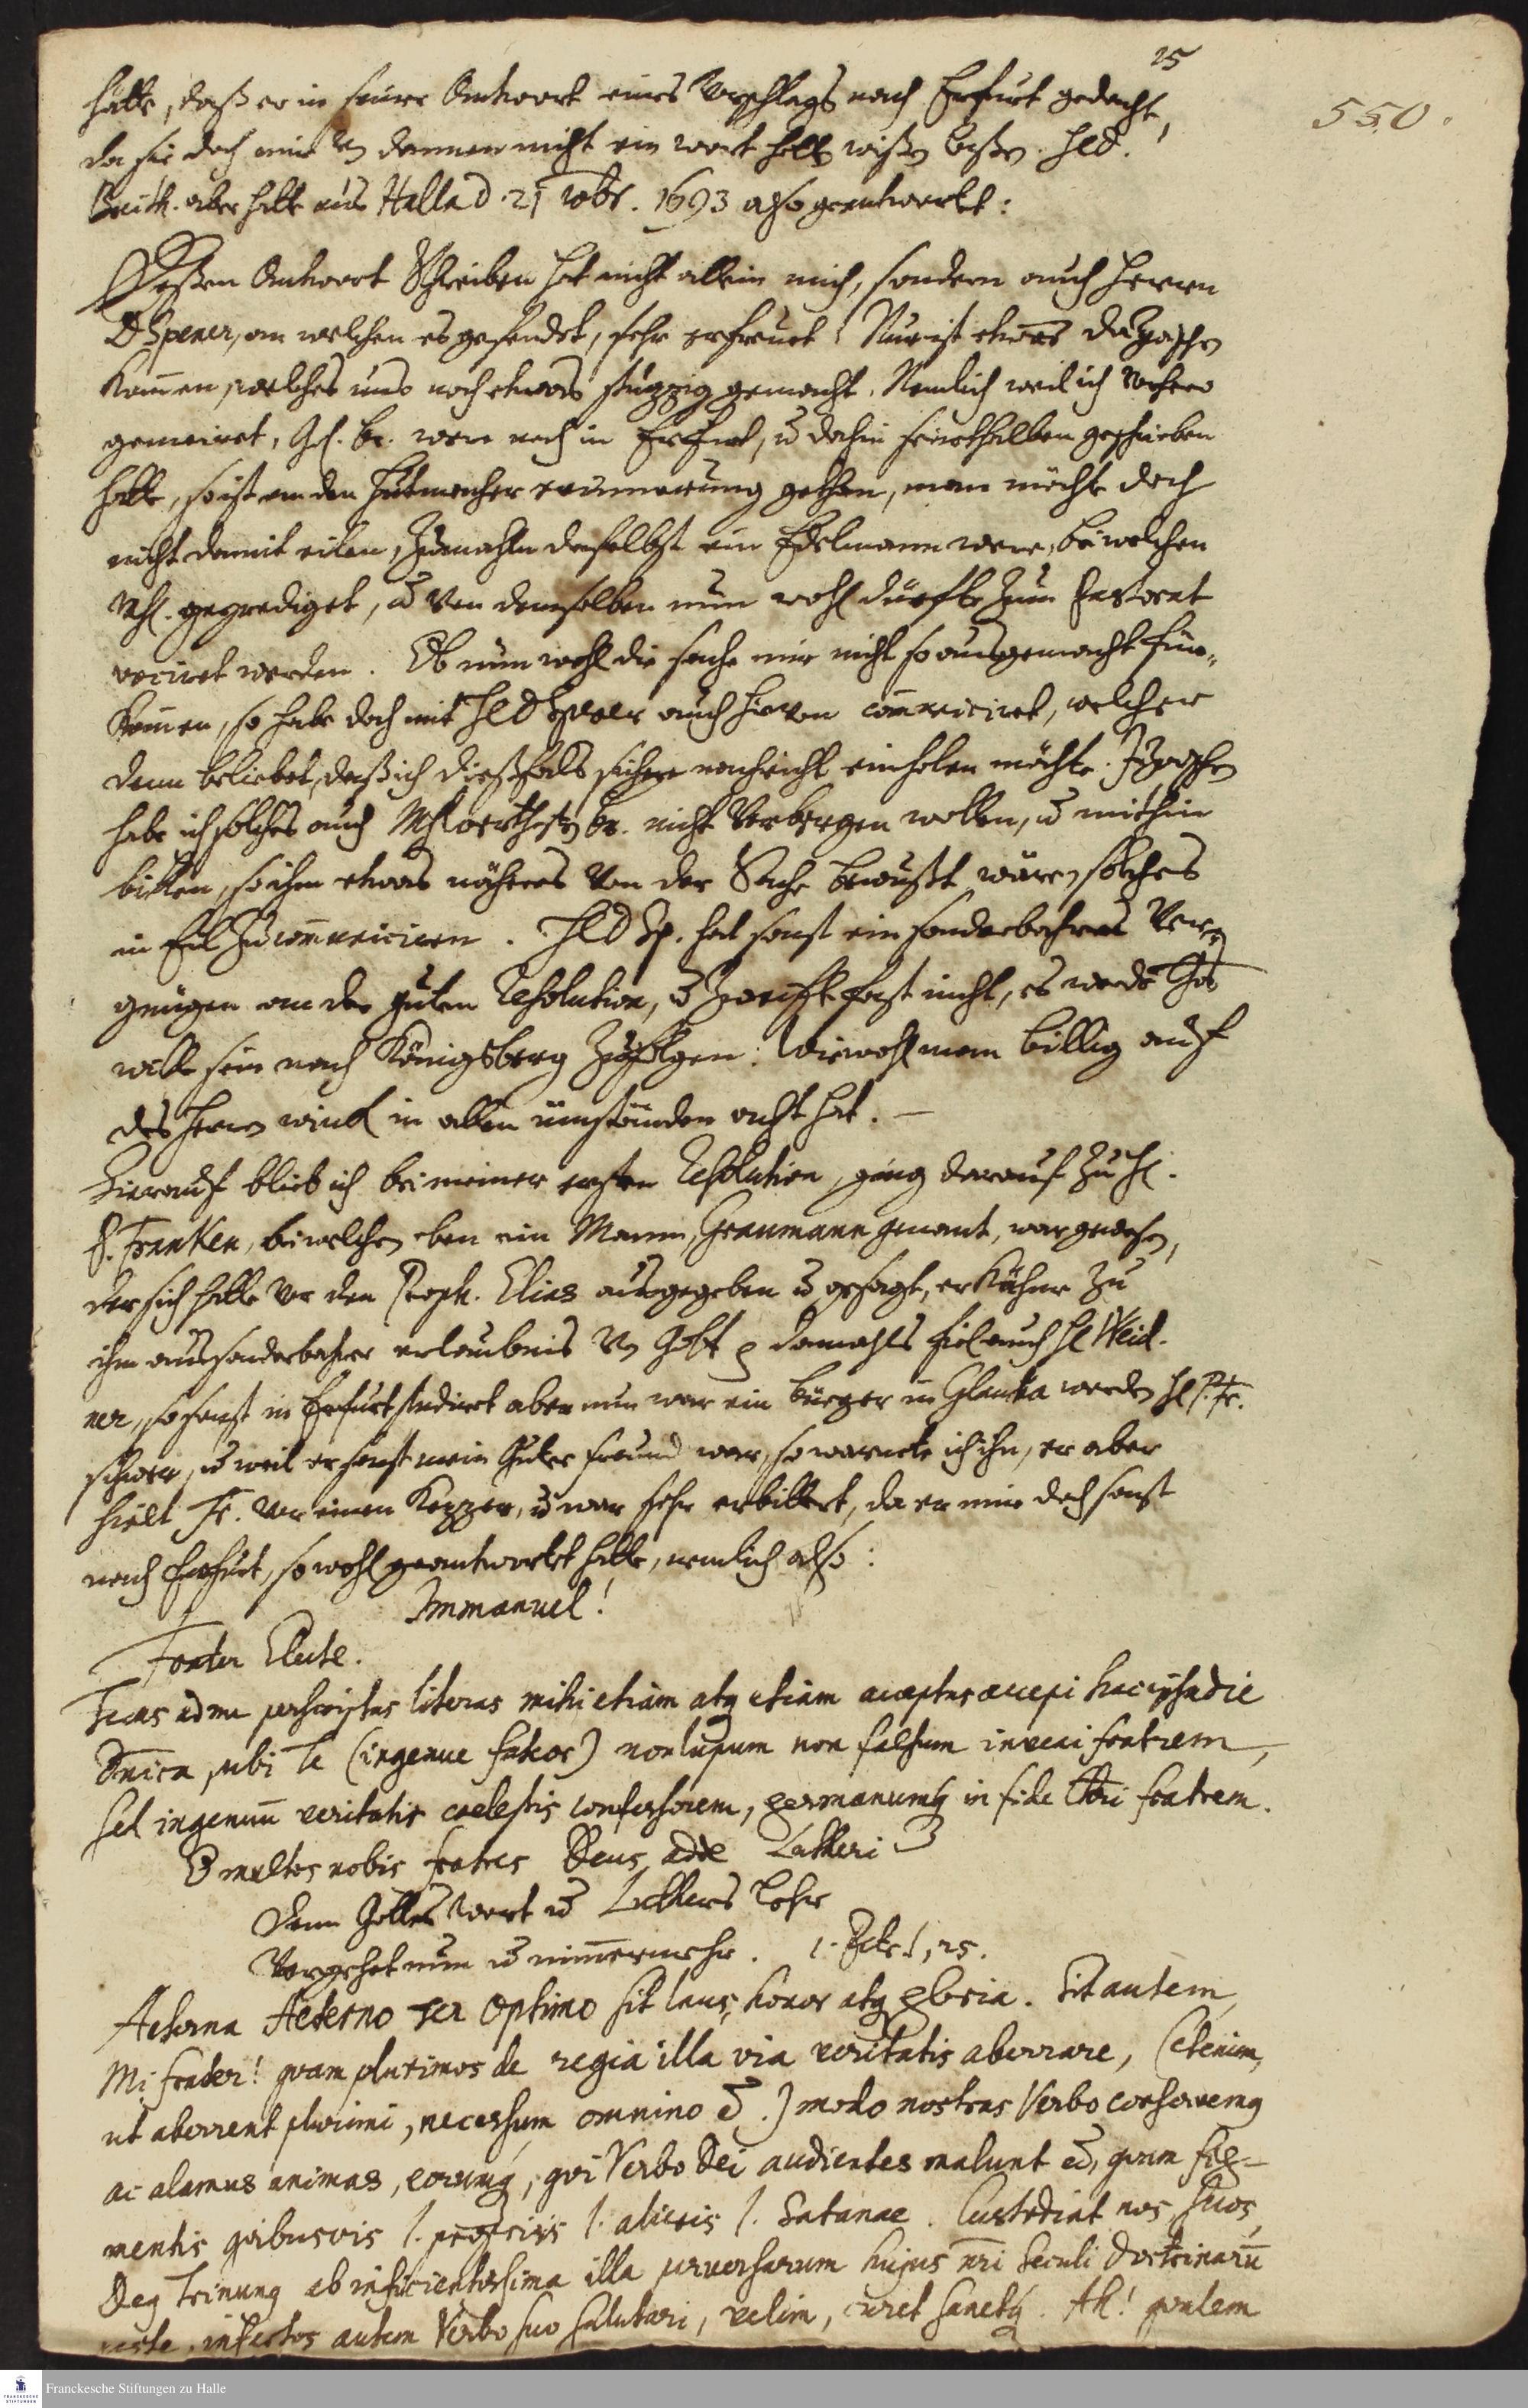 25
550.
hätte, daß er in seiner Antwort eines Vorschlags nach Erfurt gedacht,
da sie doch mir von dannen nicht ein wort hätten wißen laßen. HE D.
Breith. aber hatte aus Halla d. 21 Xbr. 1693 also geantwortet:
Deßen Antwort Schreiben hat nicht allein mich, sondern auch Herrn
D Spener, an welchen es gesendet, sehr erfreuet. Nur ist etwas dazwischen
kommen, welches uns noch etwas stuzzig gemacht. Nemlich weil ich vorhero
gemeinet, Gel. br. were noch in Erfurt, u dahin seinethalben geschrieben
hatte, so ist von den Hutmacher erinnerung gethan, man möchte doch
nicht damit eilen, zumahln daselbst ein Edelmann were, bei welchen
geprediget, u von demselben nun wohl dürfte zum Pastorat
vociret werden. Ob nun wohl die sache mir nicht so ausgemacht für-
kommen, so habe doch mit HE D Spener auch hievon communiciret, welcher
denn beliebet, daß ich dießfals sichere nachricht einholen möchte. Inzwischen
habe ich solches auch Mhwerthesten br. nicht verbergen wollen, u mithin
bitten, so ihm etwas nähers von der Sache bewußt wäre, solches
in Eil zu communiciren. HE D Sp. hat sonst ein sonderbahres Ver-
gnügen an der guten Resolution, u zweifelt fast nicht, es werde Gottes
wille sein nach Königsberg zu folgen: Wiewohl man billig auf
des Herrn winck in allen umständen acht hat. —
Hierauf blieb ich bei meiner ersten Resolution, ging darauf zu HE.
P. Franken, bei welchen eben ein Mann, Graumann genant, war gewesen,
der sich hatte vor den Proph. Elias ausgegeben u gesagt, er kähme zu
ihm aus sonderbahrer erlaubnis von Gott p damahls fiel auch HE Weid-
ner, so sonst in Erfurt studiret aber nun war ein bürger in Glaucha worden HE P. Fr.
schwer, u weil er sonst mein guter freund war, so warnete ich ihn, er aber
hielt Fr. vor einen Kezzer, u war sehr erbittert, da er mir doch sonst
nach Erfurt, so wohl geantwortet hatte, nemlich also:
Immanuel!
Frater Electe.
Tuas ad me perscriptas literas mihi etiam atq etiam acceptas accepi hac ipsa die
Dnica, ubi Te (ingenue fateor) non lupum non falsum inveni fratrem,
sed ingenuu veritatis coelestis confessorem, germanumq in fide Chri fratrem.
O multos nobis fratres Deus adde Lutheri
Denn Gottes Wort u Luthers Lehr
Vergehet nun u nimmermehr. 1. Petr. 1, 25.
Aeterna Aeterno Ter Optimo sit laus, honor atq gloria. Sit autem,
Mi frater! quam plurimos de regia illa via veritatis aberrare, (etenim,
ut aberrent plurimi, necessum omnino e.) modo nostras Verbo conservemq
ac alamus animas, eorumq, qui Verbo Dei audientes malunt ee, quam fig-
mentis quibusvis l. propriis l. alienis l. Satanae. Custodiat nos, suos,
Deq Trinunq ab inficientissima illa perversarum hujus nri seculi doctrinaru
peste, infectos autem Verbo suo salutari, velim, curet sanetq. Ah! qualem
Franckesche Stiftungen zu Halle